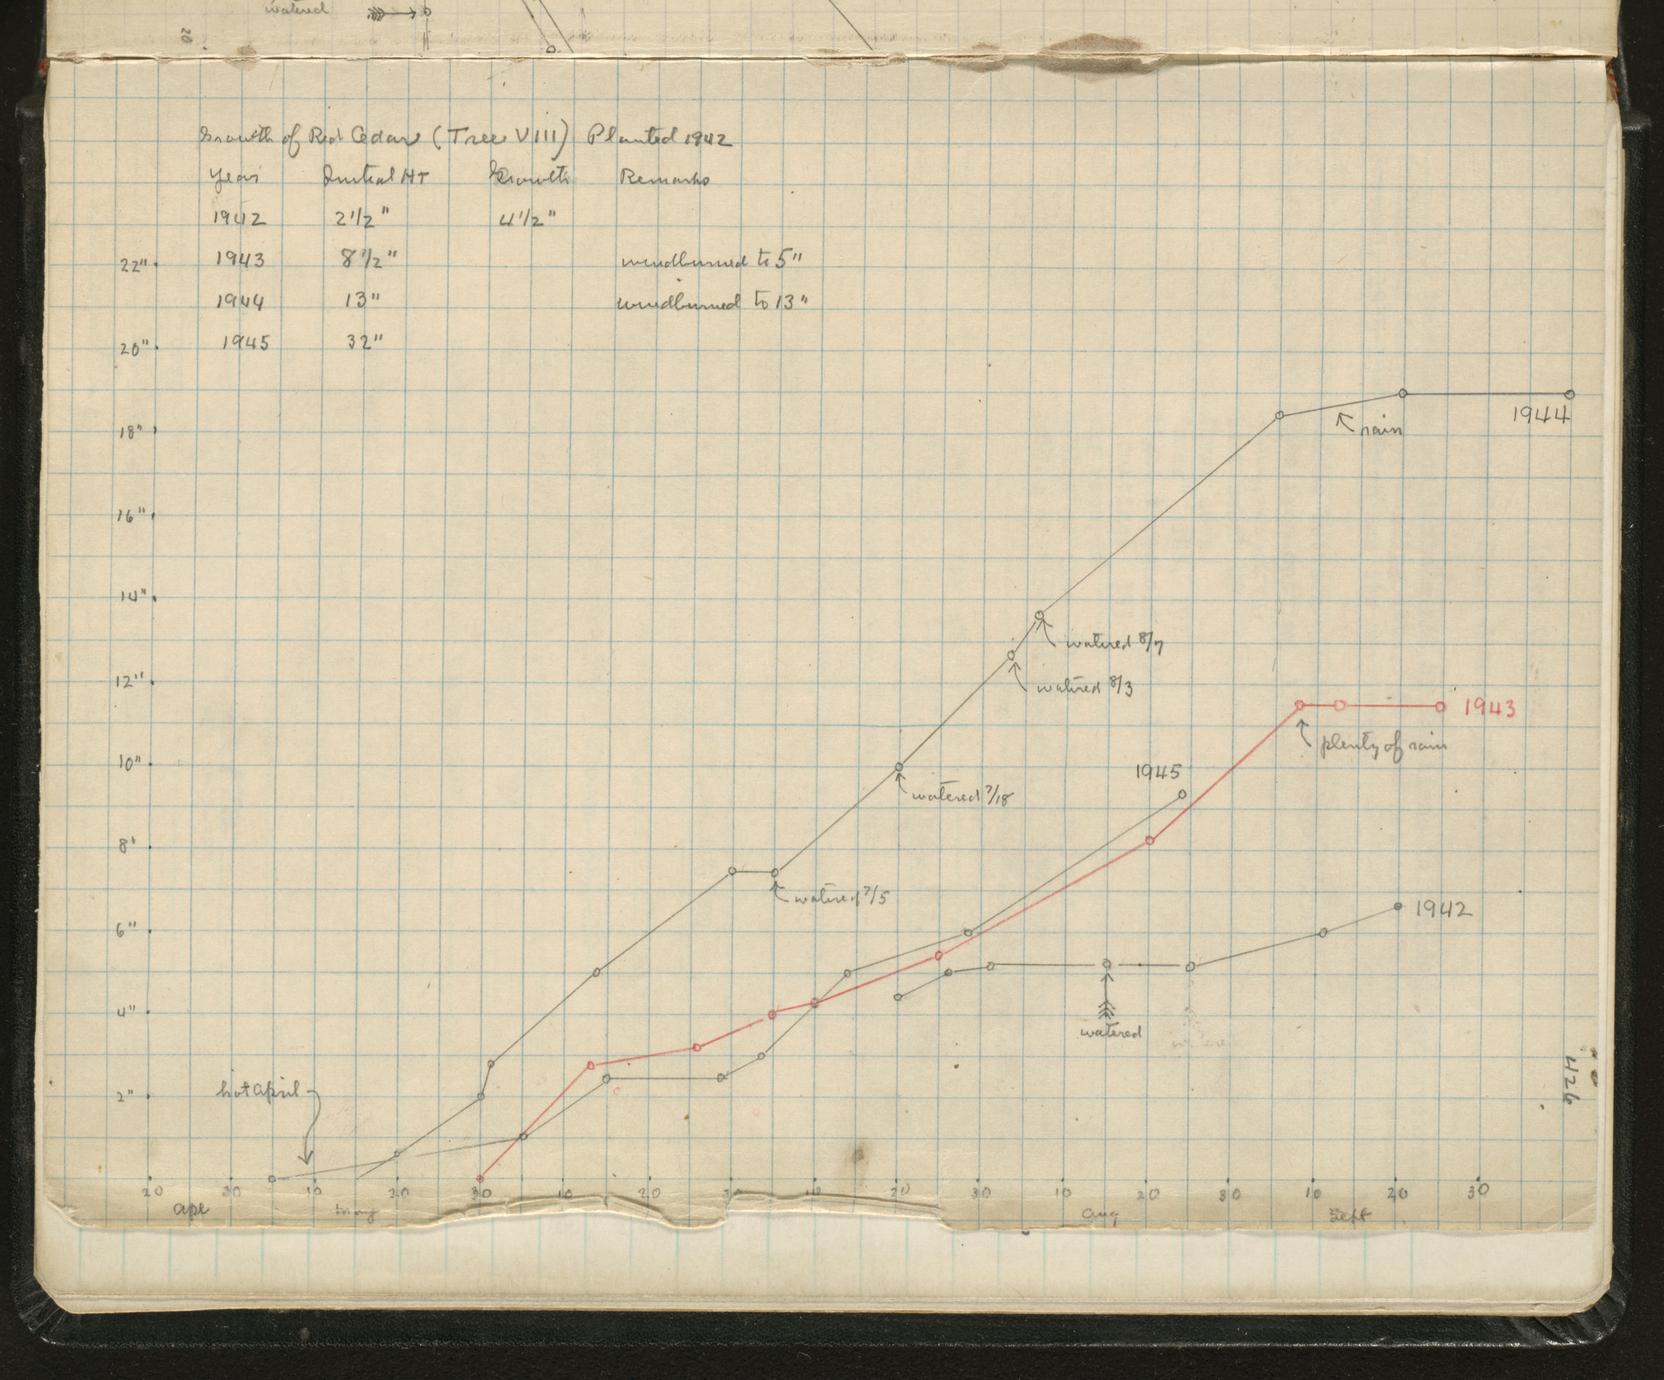 watered
20
Growth of Red Cedar (Tree VIII) Planted 1942
Year Initial HT Growth Remarks
1942 2 1/2" 4 1/2"
1943 8 1/2" windburned to 5"
1944 13" windburned to 13"
1945 32"
22"
20"
18"
16"
14"
12"
10"
8"
6"
4"
2"
1944
rain
watered 8/7
watered 8/3
1943
plenty of rain
1945
watered 7/18
watered 7/5
1942
watered
hot April
426
20 30 10 20 30 10 20 30 10 20 30 10 20 30 10 20 30
Apr May Aug Sept